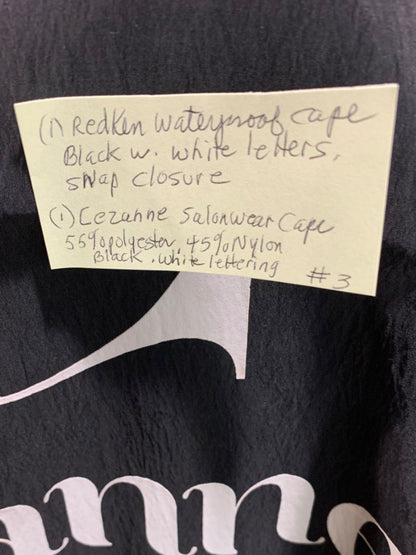 (1) Redken waterproof cape
Black w. white letters,
snap closure
(1) Cezanne Salonwear Cape
55% polyester, 45% Nylon
Black. white lettering
#3
anne